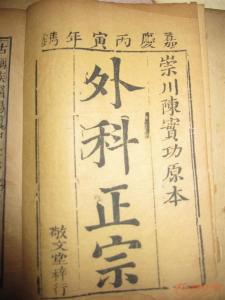 嘉慶丙寅年鐫
崇川陳實功原本
外科正宗
敬文堂梓行